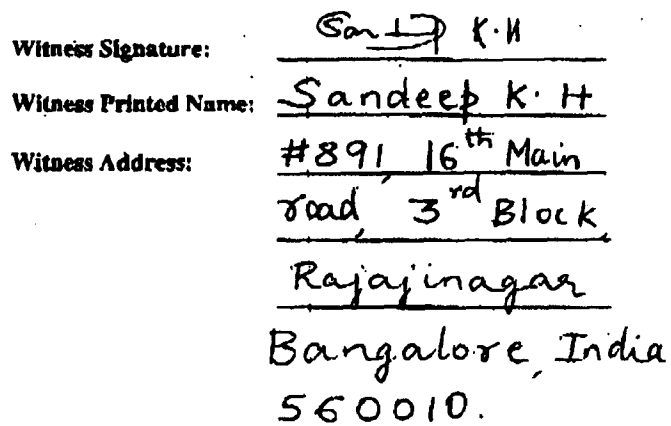 Witness Signature: Sandeep K.H
Witness Printed Name: Sandeep K. H
Witness Address: #891, 16th Main
road, 3rd Block,
Rajajinagar
Bangalore, India
560010.